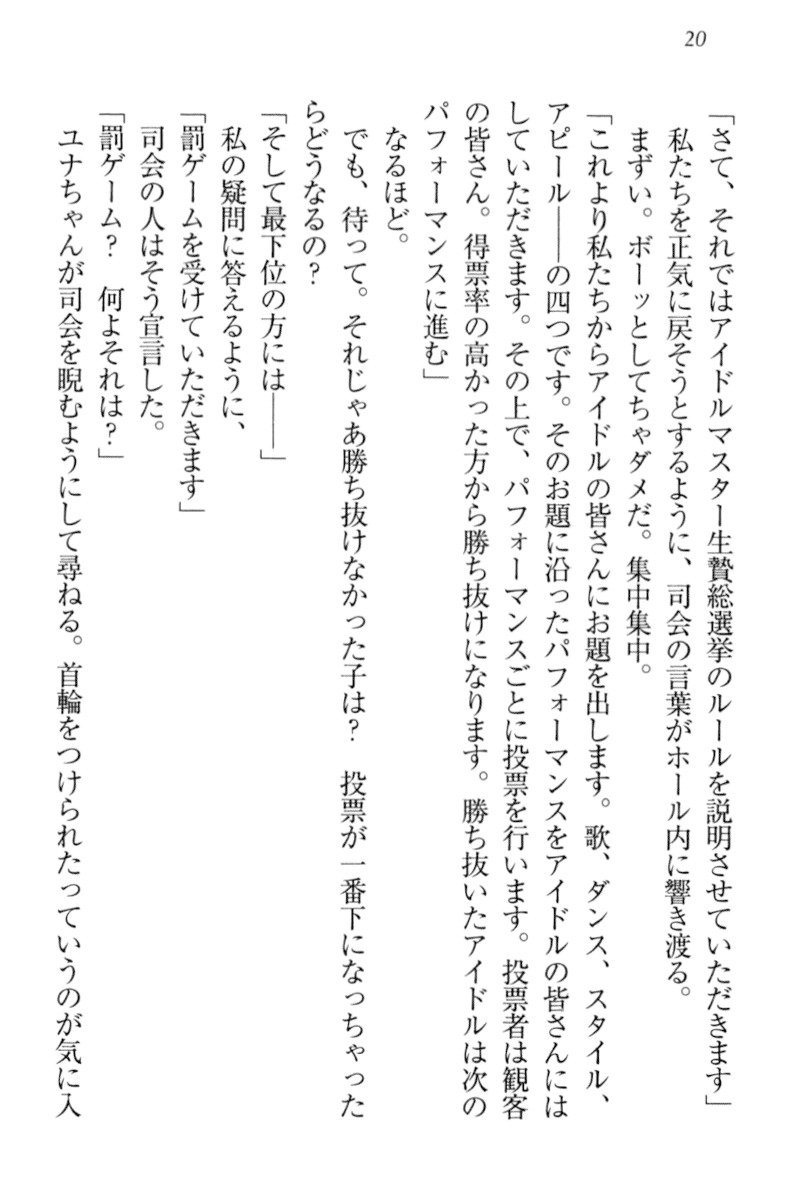 20
「さて、それではアイドルマスター生贄総選挙のルールを説明させていただきます」
私たちを正気に戻そうとするように、司会の言葉がホール内に響き渡る。
まずい。ボーッとしてちゃダメだ。集中集中。
「これより私たちからアイドルの皆さんにお題を出します。歌、ダンス、スタイル、
アピール――の四つです。そのお題に沿ったパフォーマンスをアイドルの皆さんには
していただきます。その上で、パフォーマンスごとに投票を行います。投票者は観客
の皆さん。得票率の高かった方から勝ち抜けになります。勝ち抜いたアイドルは次の
パフォーマンスに進む」
なるほど。
でも、待って。それじゃあ勝ち抜けなかった子は?　投票が一番下になっちゃった
らどうなるの?
「そして最下位の方には――」
私の疑問に答えるように、
「罰ゲームを受けていただきます」
司会の人はそう宣言した。
「罰ゲーム?　何よそれは?」
ユナちゃんが司会を睨むようにして尋ねる。首輪をつけられたっていうのが気に入